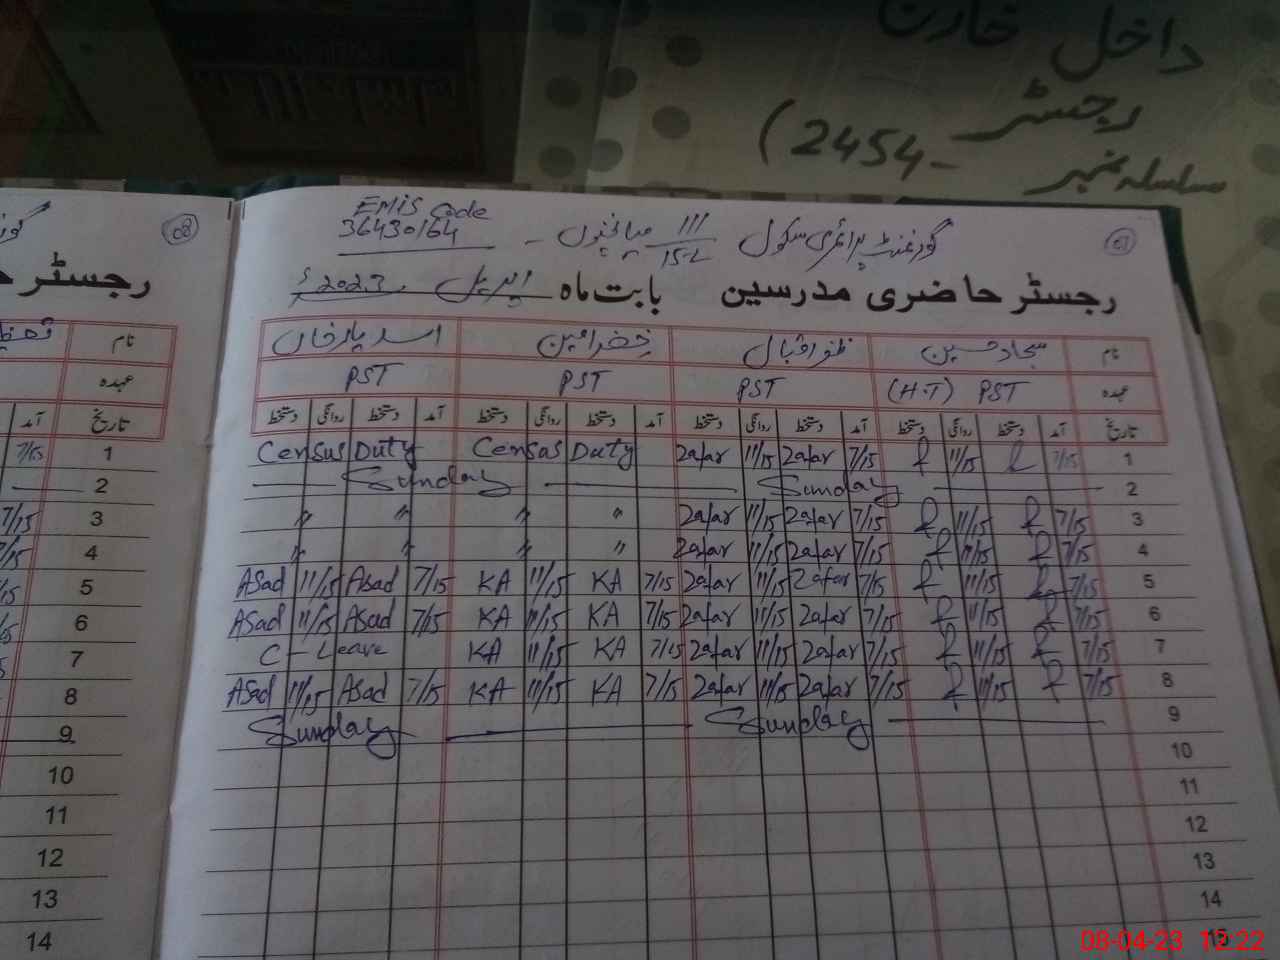 داخل خارج
رجسٹر
سلسلہ نمبر -2454)
EMIS Code
36430164
گورنمنٹ پرائمری سکول 111/15-L میانچنوں -
07
رجسٹر حاضری مدرسین بابت ماہ اپریل 2023ء
نام سجاد حسین ظفر اقبال خضر امین اسد یار خاں
عہدہ PST (H.T) PST PST PST
تاریخ آمد دستخط روانگی دستخط آمد دستخط روانگی دستخط آمد دستخط روانگی دستخط آمد دستخط روانگی دستخط
Census Duty Census Duty Zafar 11/15 Zafar 7/15 11/15 7/15 1
Sunday Sunday 2
〃 〃 〃 〃 Zafar 11/15 Zafar 7/15 11/15 7/15 3
〃 〃 〃 〃 Zafar 11/15 Zafar 7/15 11/15 7/15 4
Asad 11/15 Asad 7/15 KA 11/15 KA 7/15 Zafar 11/15 Zafar 7/15 11/15 7/15 5
Asad 11/15 Asad 7/15 KA 11/15 KA 7/15 Zafar 11/15 Zafar 7/15 11/15 7/15 6
C - Leave KA 11/15 KA 7/15 Zafar 11/15 Zafar 7/15 11/15 7/15 7
Asad 11/15 Asad 7/15 KA 11/15 KA 7/15 Zafar 11/15 Zafar 7/15 11/15 7/15 8
Sunday Sunday 9
10
11
12
13
14
15
08
رجسٹر
نام
عہدہ
تاریخ آمد
7/15 1
2
7/15 3
7/15 4
5
6
7
8
9
10
11
12
13
14
08-04-23 12:22